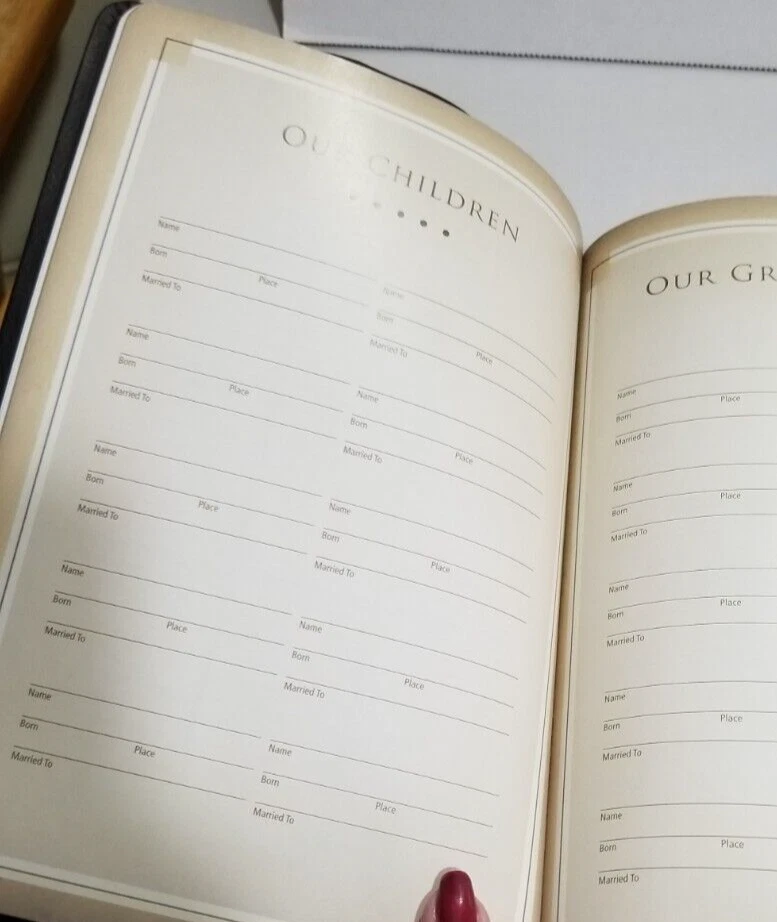 OUR CHILDREN
Name
Born Place
Married To
Name
Born Place
Married To
Name
Born Place
Married To
Name
Born Place
Married To
Name
Born Place
Married To
Name
Born Place
Married To
Name
Born Place
Married To
Name
Born Place
Married To
Name
Born Place
Married To
Name
Born Place
Married To
OUR GR
Name
Born Place
Married To
Name
Born Place
Married To
Name
Born Place
Married To
Name
Born Place
Married To
Name
Born Place
Married To